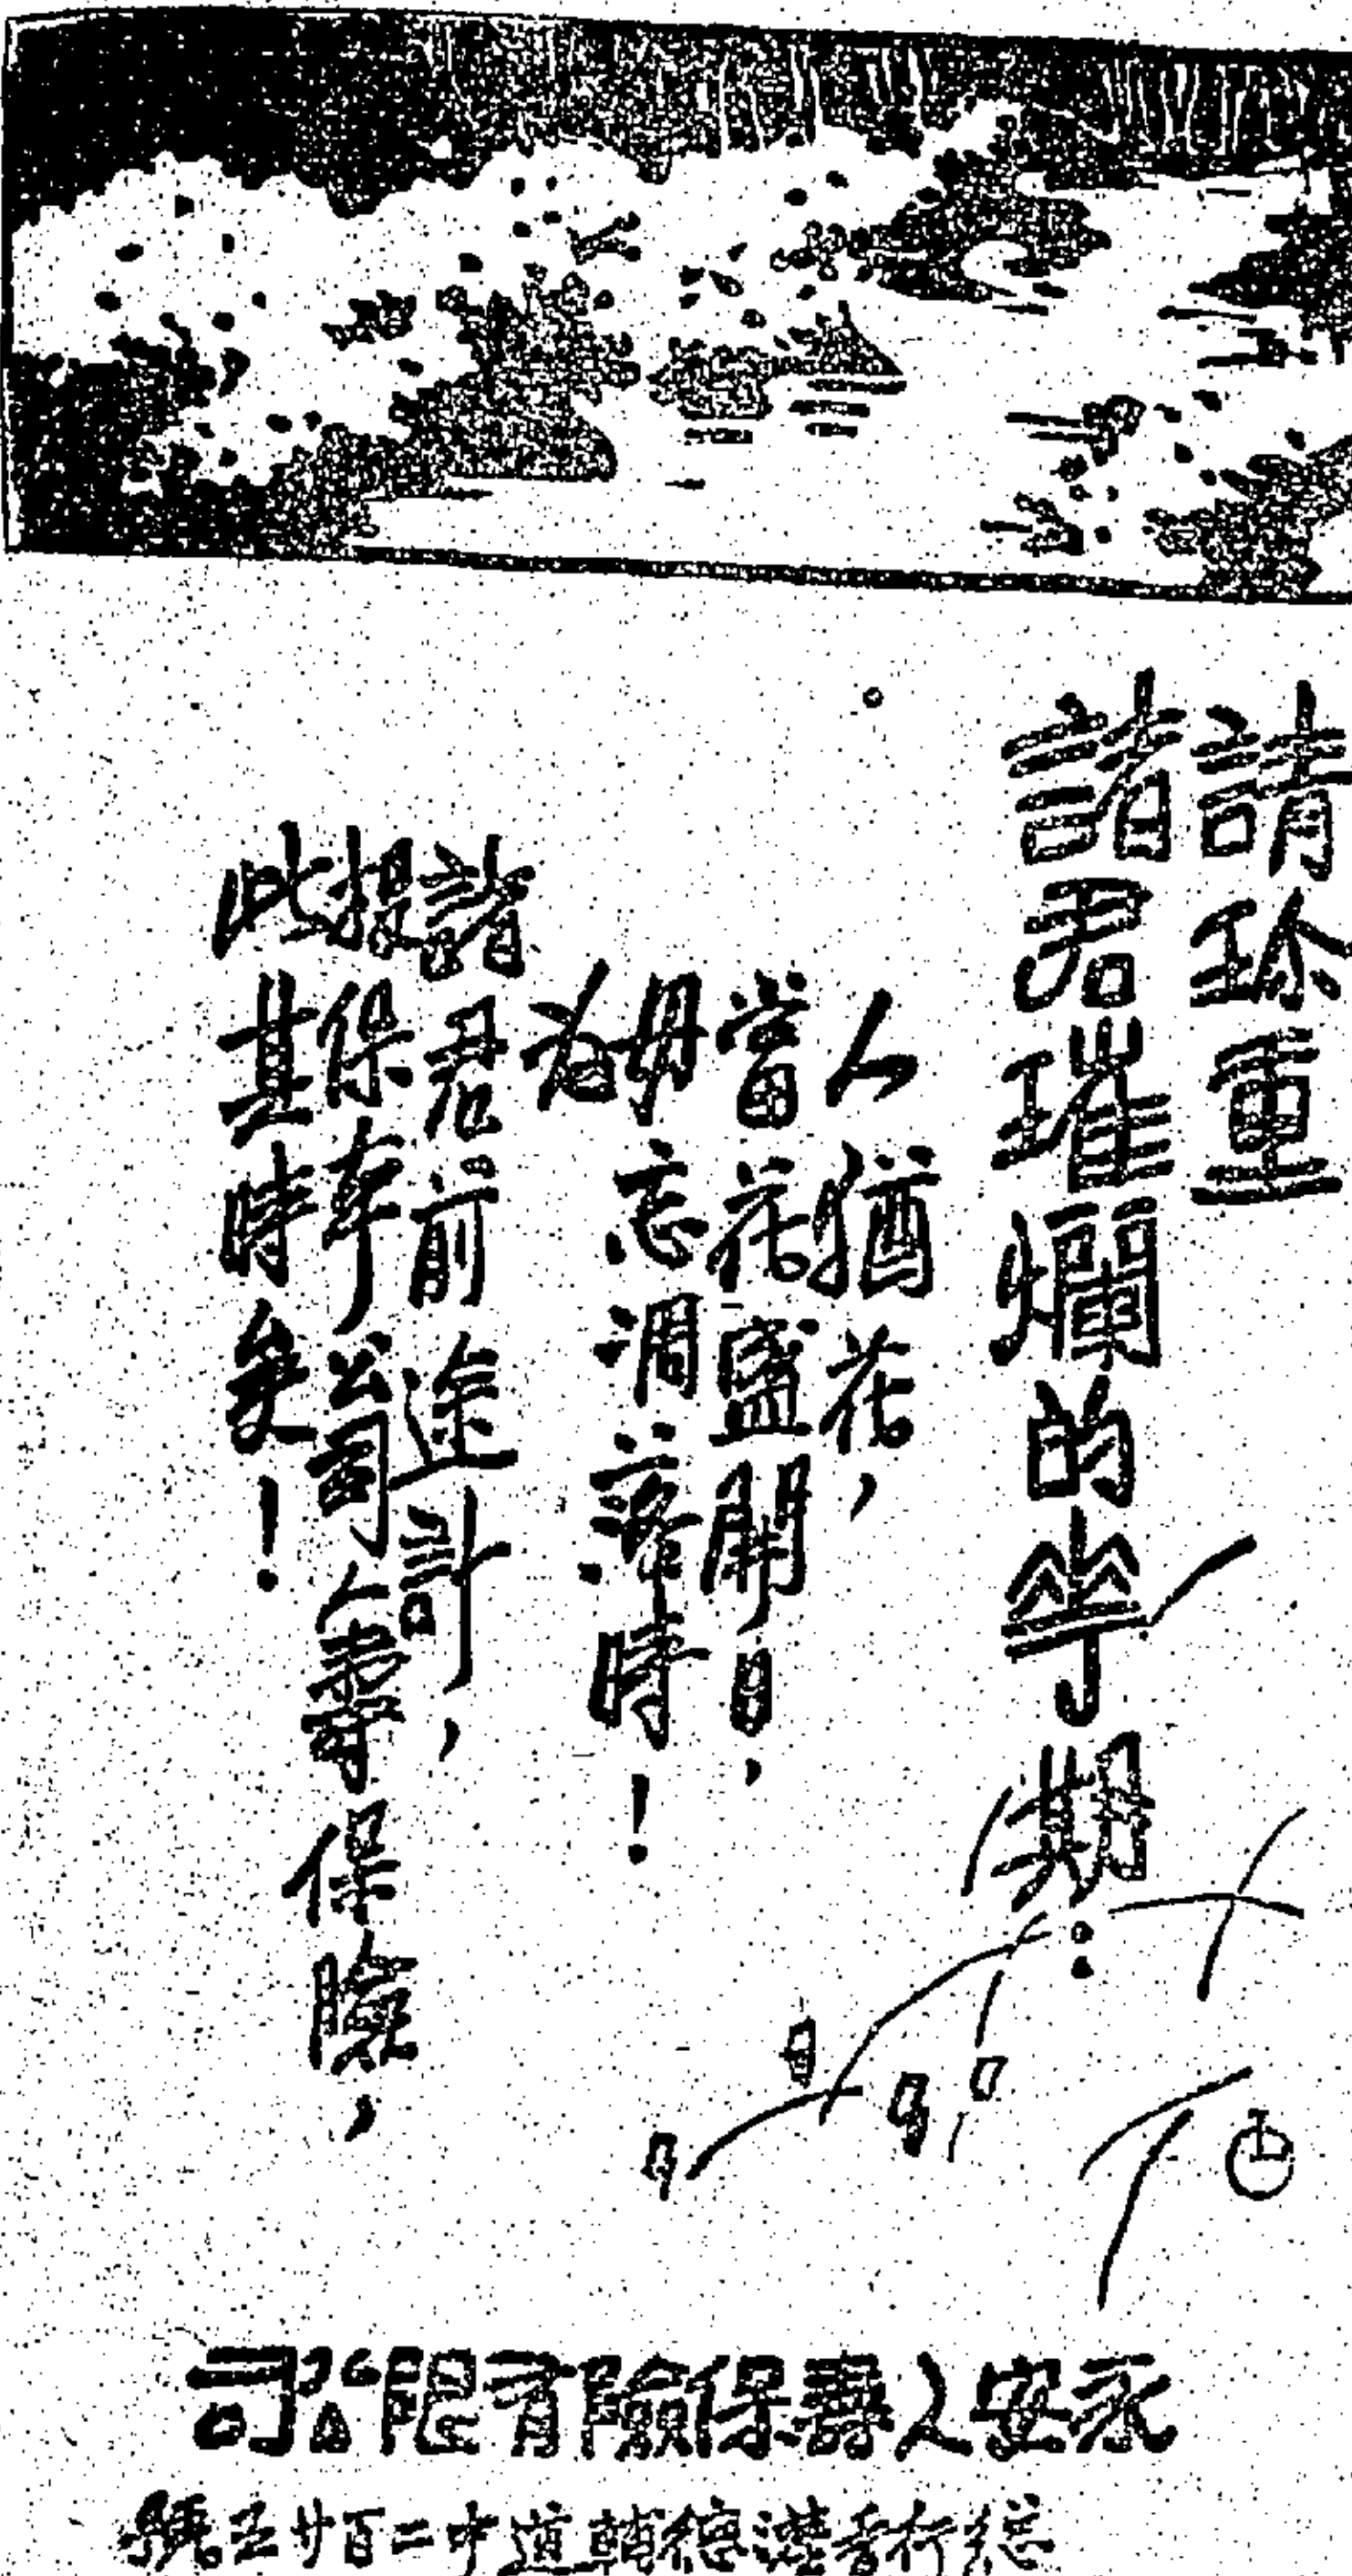 請珍重
諸君璀爛的華期：
人猶花，
當花盛開日，
毋忘凋落時！
為
諸君前途計，
投保本公司人壽保險，
此其時矣！
永安人壽保險有限公司
總行香港德輔道中二百廿五號